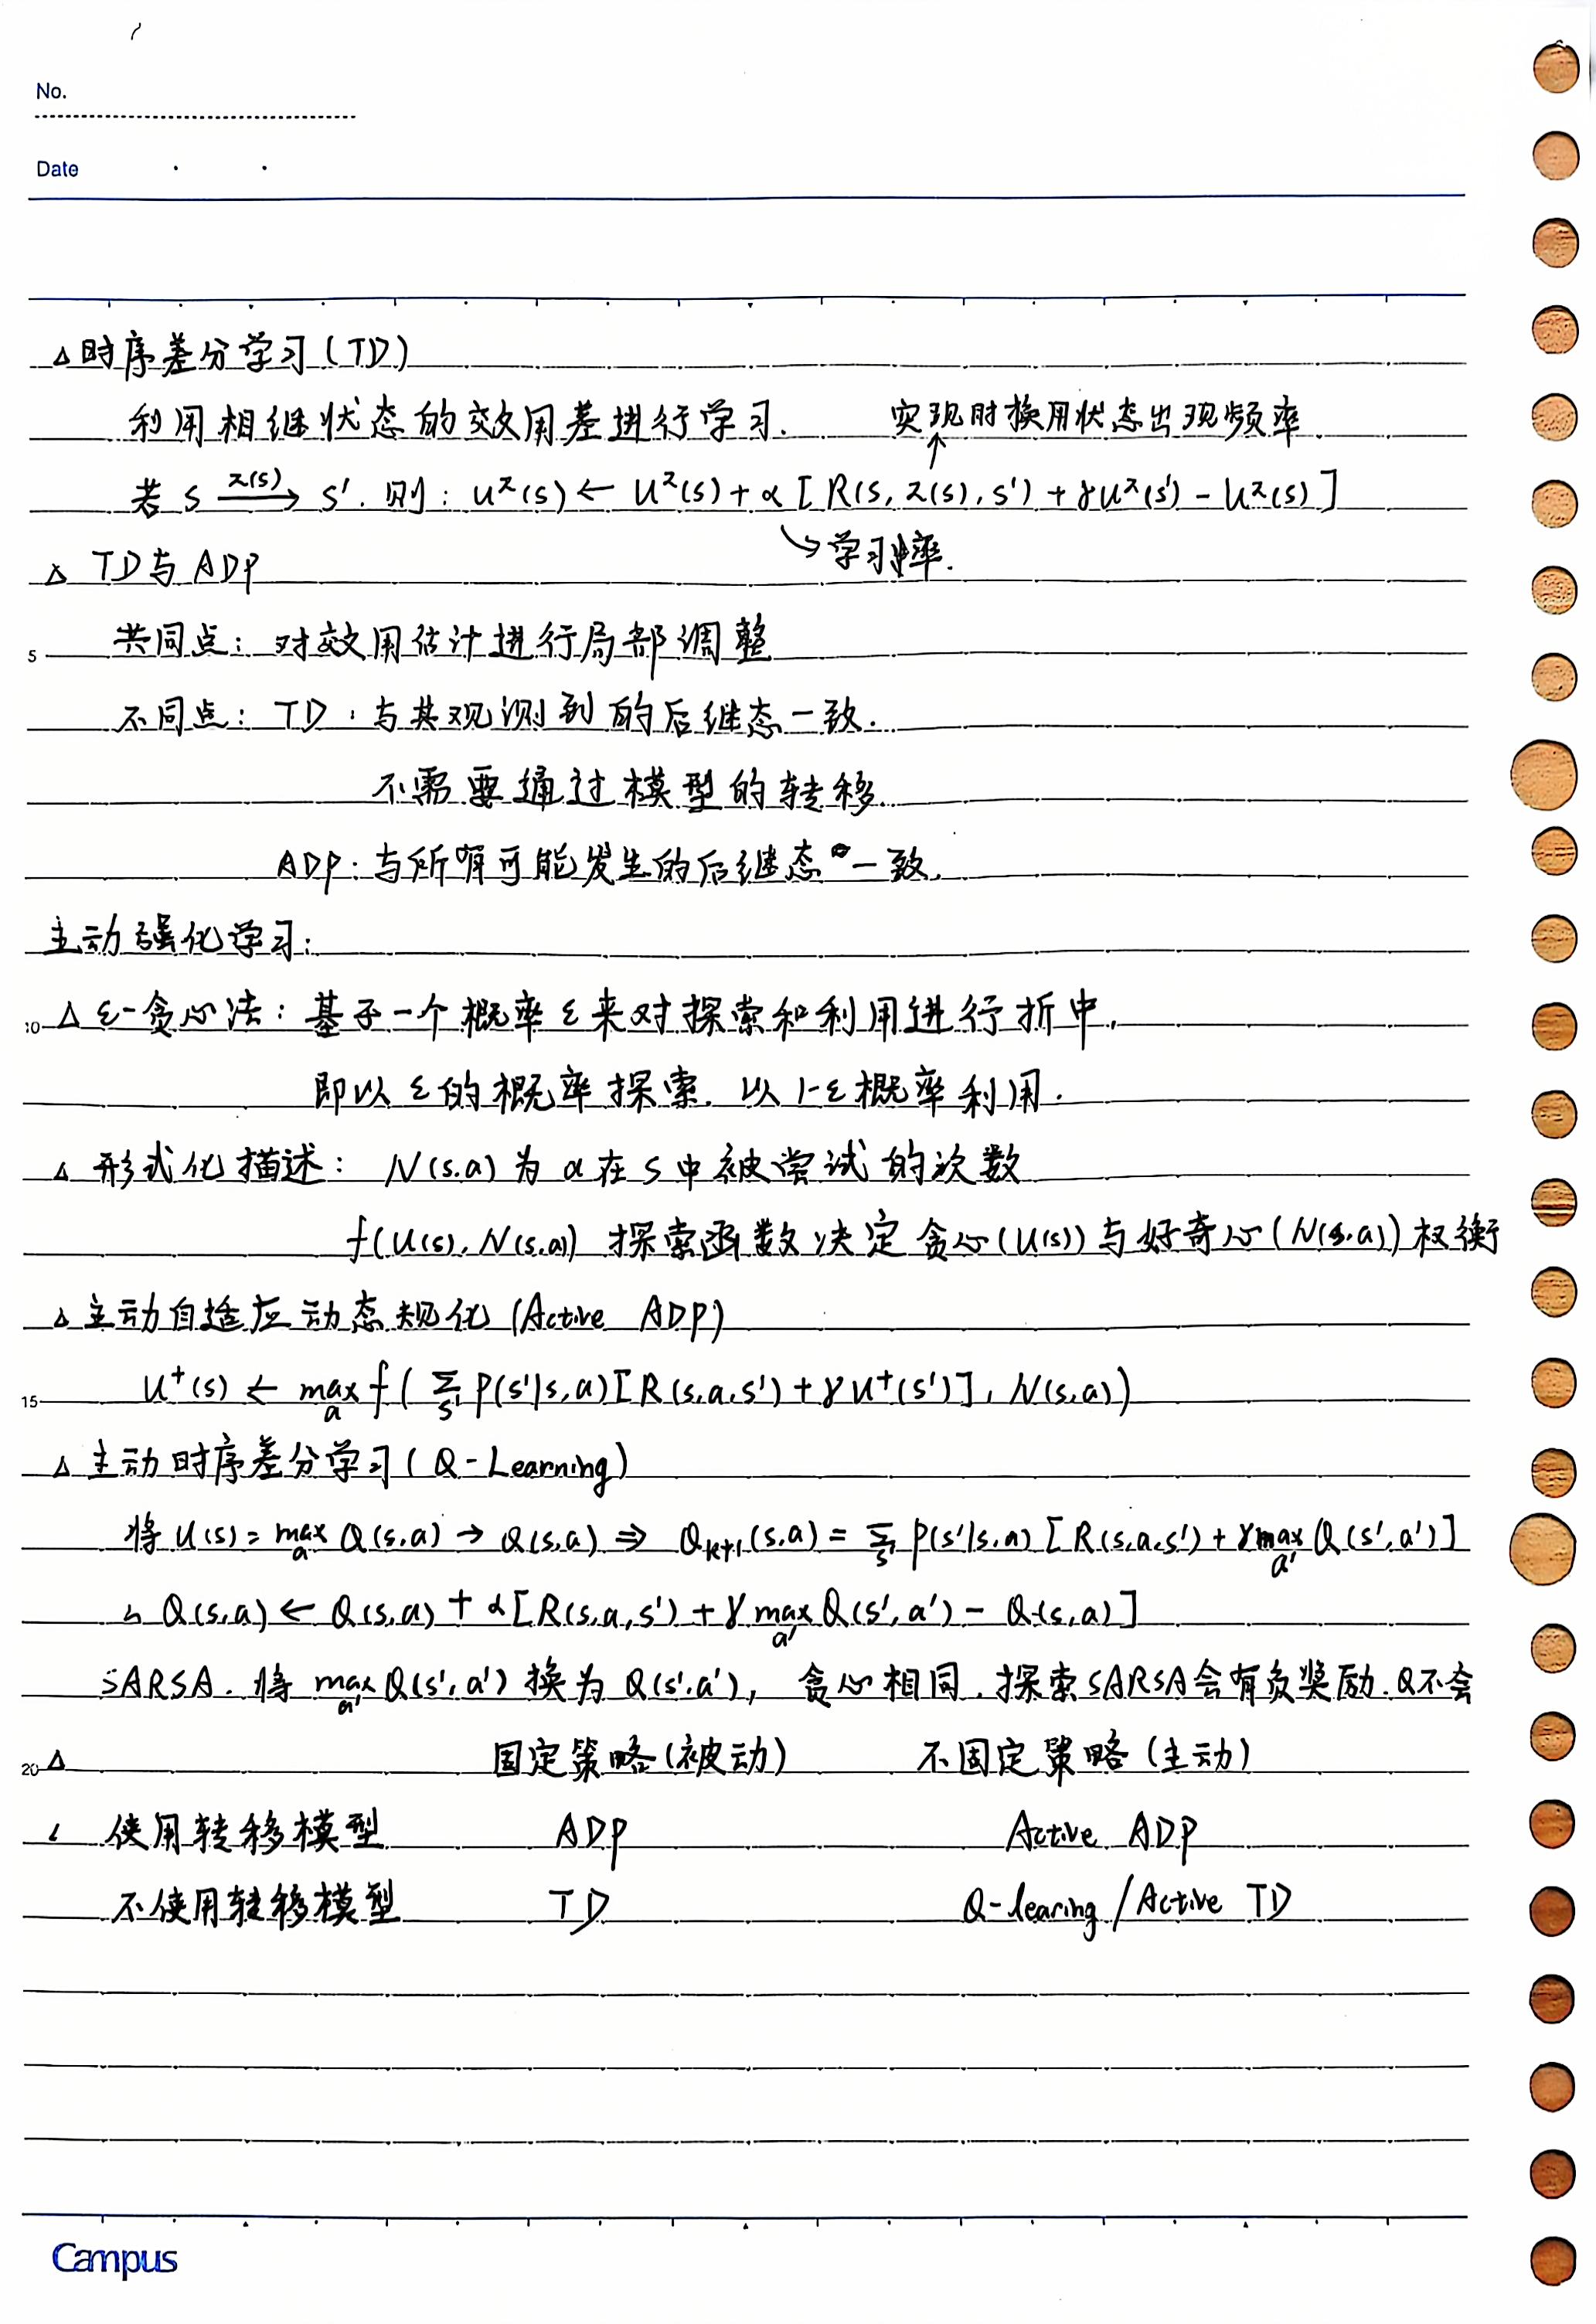 No.
Date
△时序差分学习(TD)
利用相继状态的效用差进行学习. 实现时换用状态出现频率
若 s —π(s)→ s'. 则: U^π(s) ← U^π(s) + α [ R(s, π(s), s') + γU^π(s') - U^π(s) ]
↳学习率.
△ TD与ADP
5 共同点: 对效用估计进行局部调整
不同点: TD: 与其观测到的后继态一致.
不需要通过模型的转移.
ADP: 与所有可能发生的后继态一致.
主动强化学习:
10 △ ε-贪心法: 基于一个概率ε来对探索和利用进行折中,
即以ε的概率探索. 以1-ε概率利用.
△ 形式化描述: N(s.a) 为 a 在 s 中被尝试的次数
f(U(s), N(s,a)) 探索函数决定贪心(U(s))与好奇心(N(s,a))权衡
△主动自适应动态规化(Active ADP)
15 U⁺(s) ← max_a f( Σ_s' P(s'|s,a)[R(s.a.s') + γU⁺(s')], N(s,a))
△ 主动时序差分学习(Q-Learning)
将 U(s) = max_a Q(s,a) → Q(s,a) ⇒ Q_k+1(s,a) = Σ_s' P(s'|s,a) [R(s,a,s') + γ max_a' Q(s',a')]
↳ Q(s,a) ← Q(s,a) + α[R(s,a,s') + γ max_a' Q(s',a') - Q(s,a)]
SARSA. 将 max_a' Q(s',a') 换为 Q(s',a'), 贪心相同. 探索SARSA会有负奖励. Q不会
20 △ 固定策略(被动) 不固定策略(主动)
使用转移模型 ADP Active ADP
不使用转移模型 TD Q-learing/Active TD
Campus